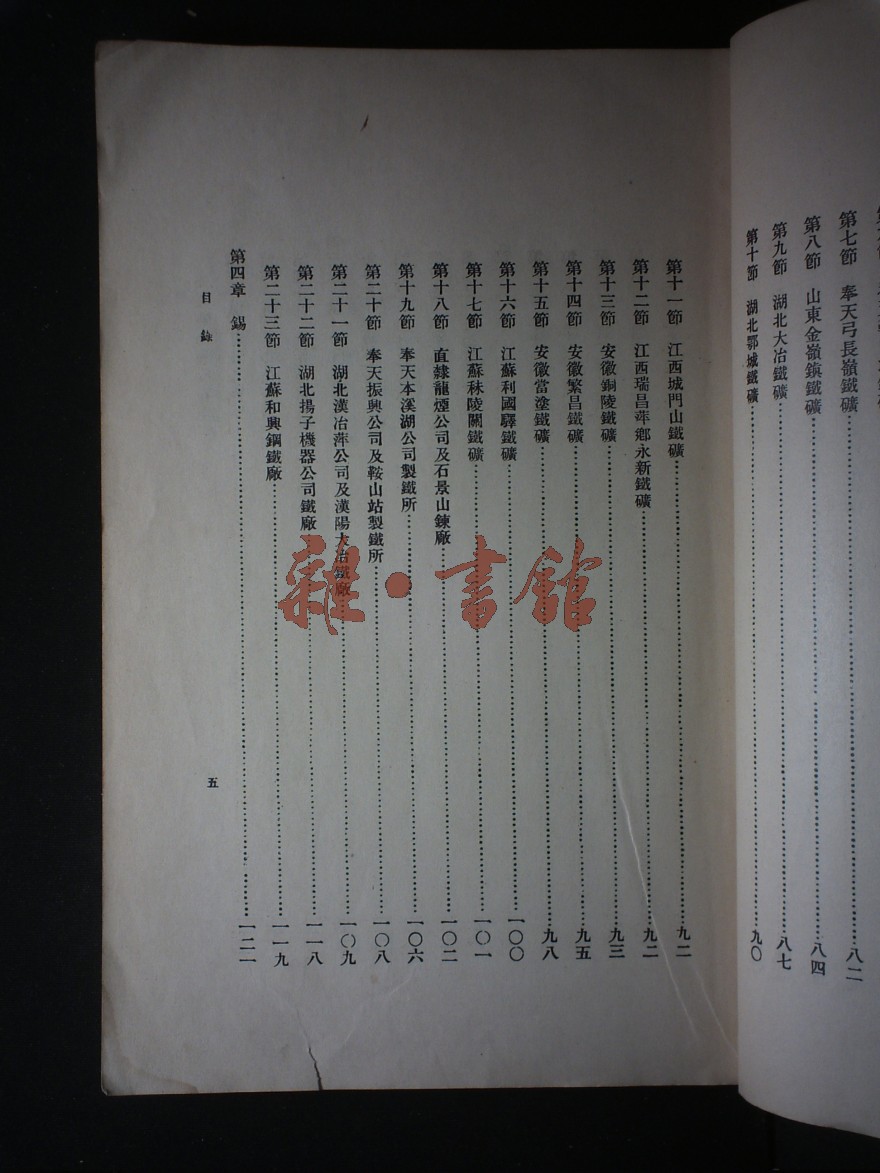 第七節　奉天弓長嶺鐵礦……八二
第八節　山東金嶺鎮鐵礦……八四
第九節　湖北大冶鐵礦……八七
第十節　湖北鄂城鐵礦……九〇
第十一節　江西城門山鐵礦……九二
第十二節　江西瑞昌萍鄉永新鐵礦……九二
第十三節　安徽銅陵鐵礦……九三
第十四節　安徽繁昌鐵礦……九五
第十五節　安徽當塗鐵礦……九八
第十六節　江蘇利國驛鐵礦……一〇〇
第十七節　江蘇秣陵關鐵礦……一〇一
第十八節　直隸龍煙公司及石景山鍊廠……一〇二
第十九節　奉天本溪湖公司製鐵所……一〇六
第二十節　奉天振興公司及鞍山站製鐵所……一〇八
第二十一節　湖北漢冶萍公司及漢陽大冶鐵廠……一〇九
第二十二節　湖北揚子機器公司鐵廠……一一八
第二十三節　江蘇和興鋼鐵廠……一一九
第四章　錫……一二一
目錄
五
雜·書館